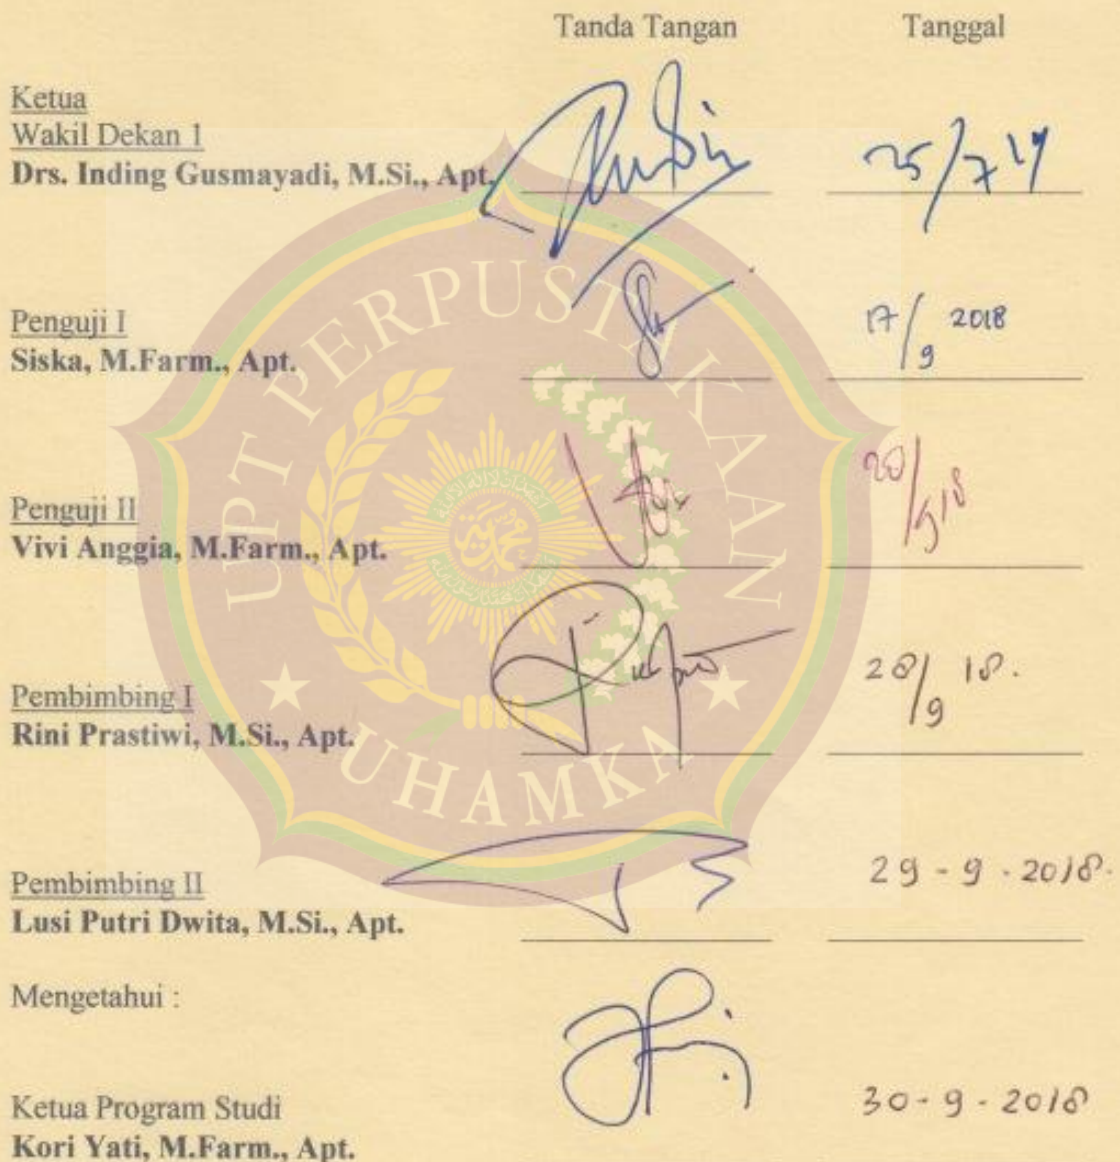 Tanda Tangan Tanggal
Ketua
Wakil Dekan 1
Drs. Inding Gusmayadi, M.Si., Apt.
25/7 19
Penguji I
Siska, M.Farm., Apt.
17/9 2018
Penguji II
Vivi Anggia, M.Farm., Apt.
Pembimbing I
Rini Prastiwi, M.Si., Apt.
28/9 18.
Pembimbing II
Lusi Putri Dwita, M.Si., Apt.
29-9-2018.
Mengetahui :
Ketua Program Studi
Kori Yati, M.Farm., Apt.
30-9-2018
UPT PERPUSTAKAAN
UHAMKA